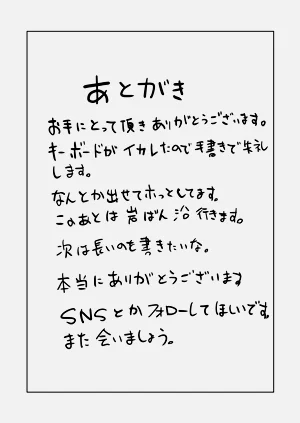 あとがき
お手にとって頂きありがとうございます。
キーボードがイカレたので手書きで失礼
します。
なんとか出せてホッとしてます。
このあとは岩ばん浴行きます。
次は長いのも書きたいな。
本当にありがとうございます
SNSとかフォローしてほしいです。
また会いましょう。